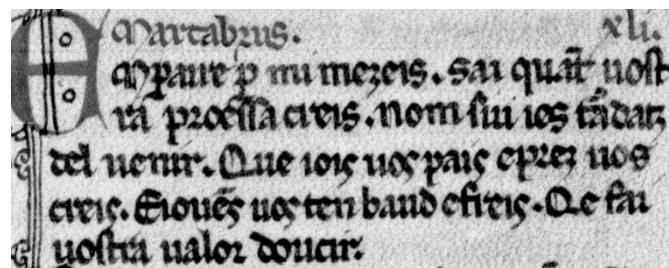 Marcabrus. xli.
EMꝑaire ꝑ mi mezeis. sai quāt uost
ra proessa creis. Nom sui ies tādatz
del uenir. Que iois uos pais eprez uos
creis. Eiouēs uos ten baud efreis. Qe fai
uostra ualor doucir.